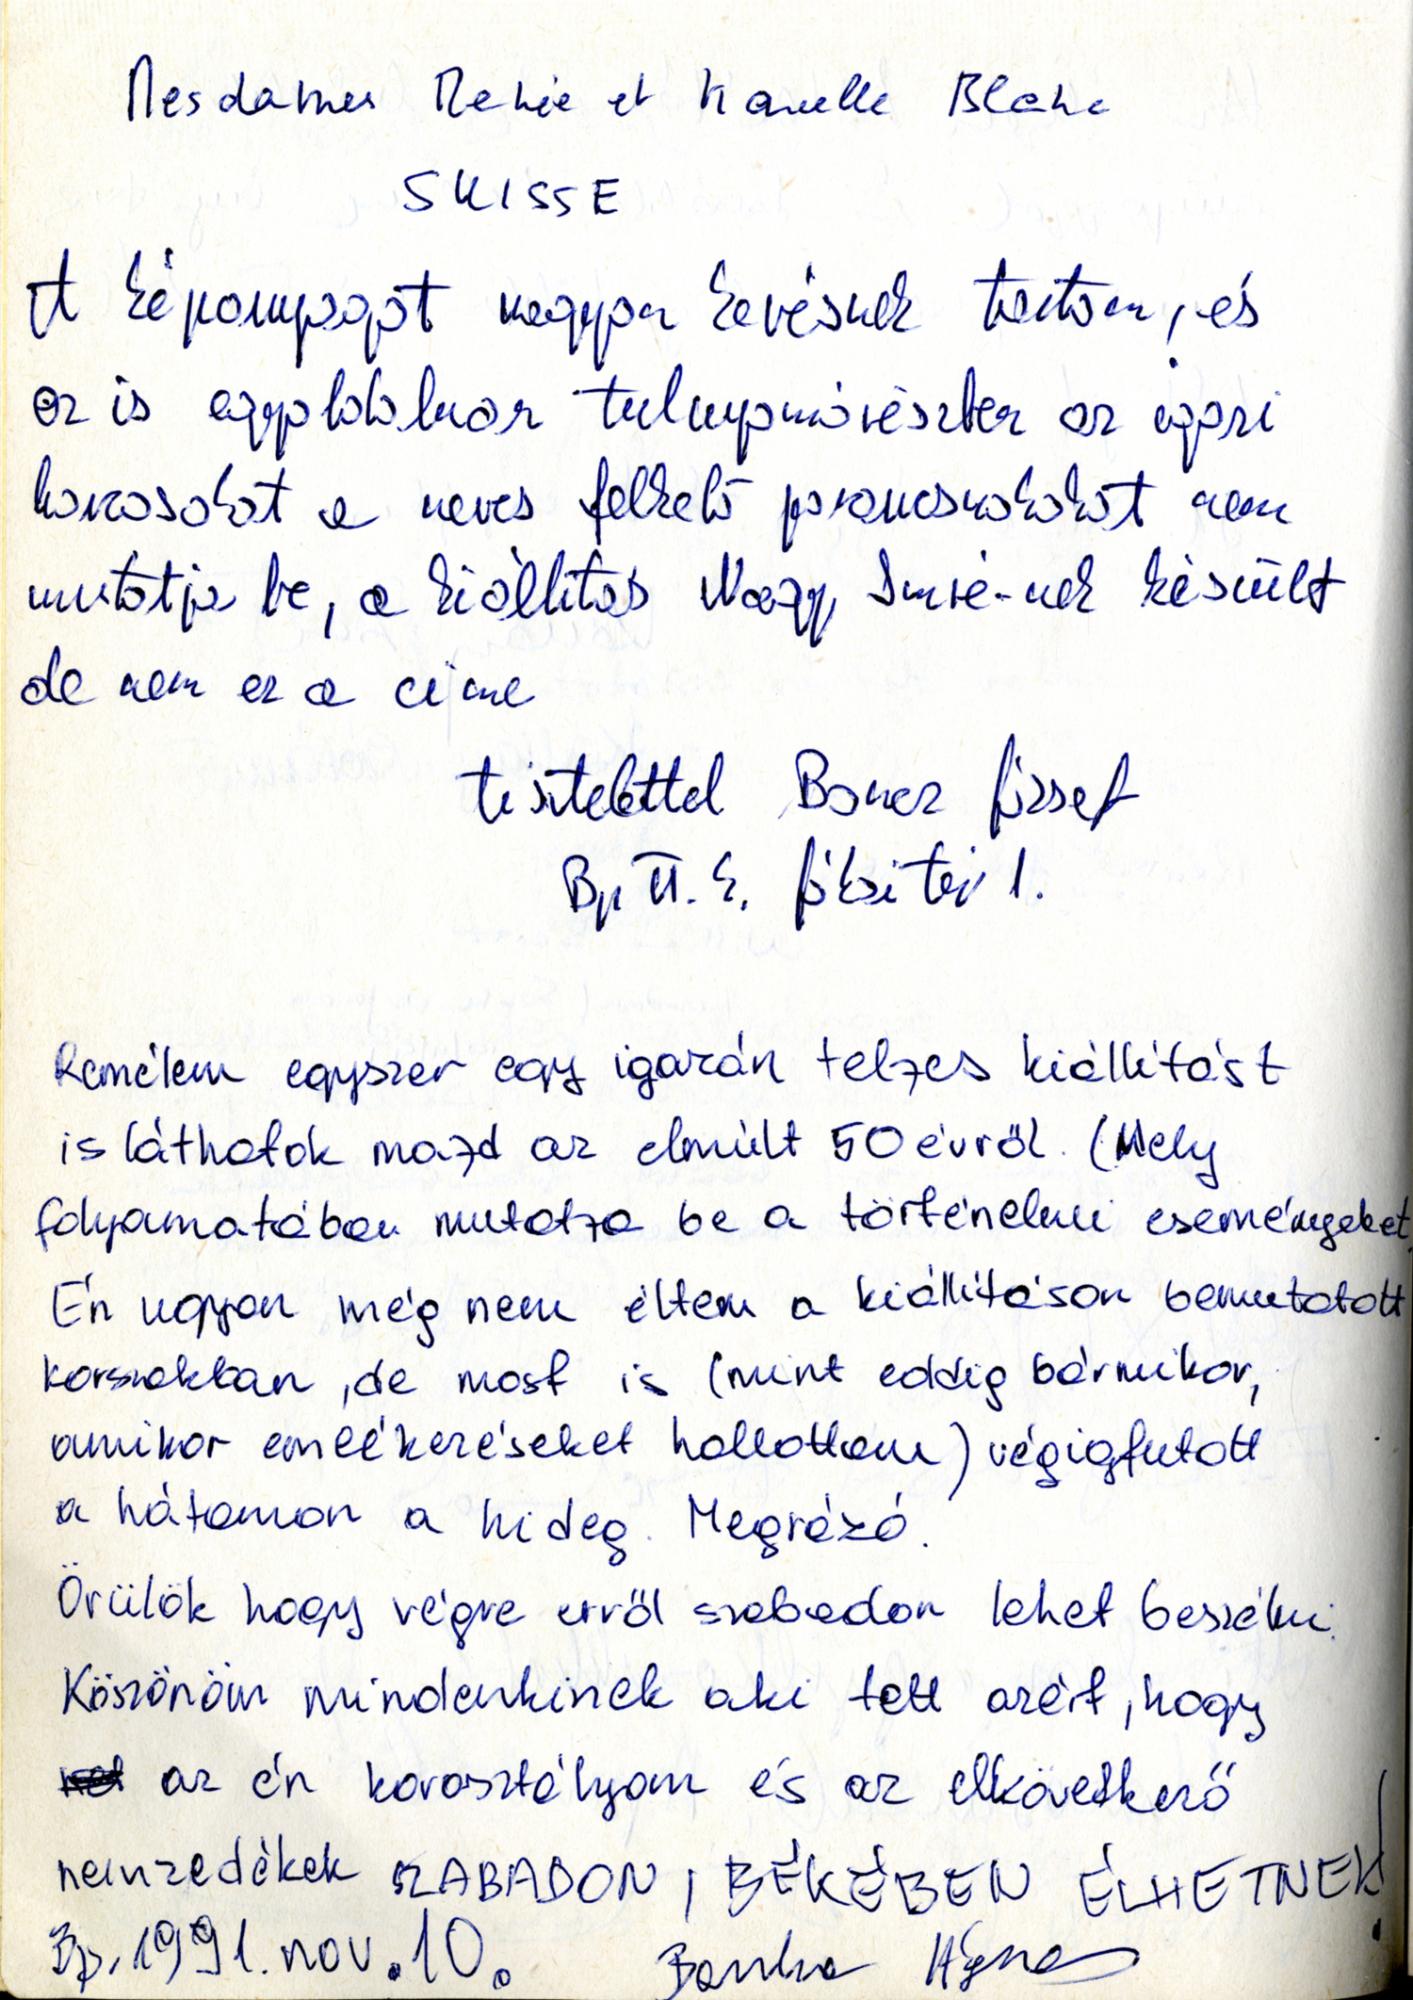 Mesdames Renée et Blanc
SUISSE
A képanyagot nagyon kevésnek tartom, és
ez is egyoldaluan tulnyomórészben az igazi
harcosokat a neves felkelő parancsnokokat nem
mutatja be, a kiállitás Nagy Imré-nek készült
de nem ez a cime
tisztelettel József
Bp II. k. 1.
Remélem egyszer egy igazán teljes kiállítást
is láthatok majd az elmúlt 50 évről. (Mely
folyamatában mutatja be a történelmi eseményeket
Én ugyan még nem éltem a kiállításon bemutatott
korszakban, de most is (mint eddig bármikor,
amikor emlékezéseket hallottam) végigfutott
a hátamon a hideg. Megrázó.
Örülök hogy végre erről szabadon lehet beszélni.
Köszönöm mindenkinek aki tett azért, hogy
az én korosztályom és az elkövetkező
nemzedékek SZABADON, BÉKÉBEN ÉLHETNEK!
Bp. 1991. nov. 10. Ágnes